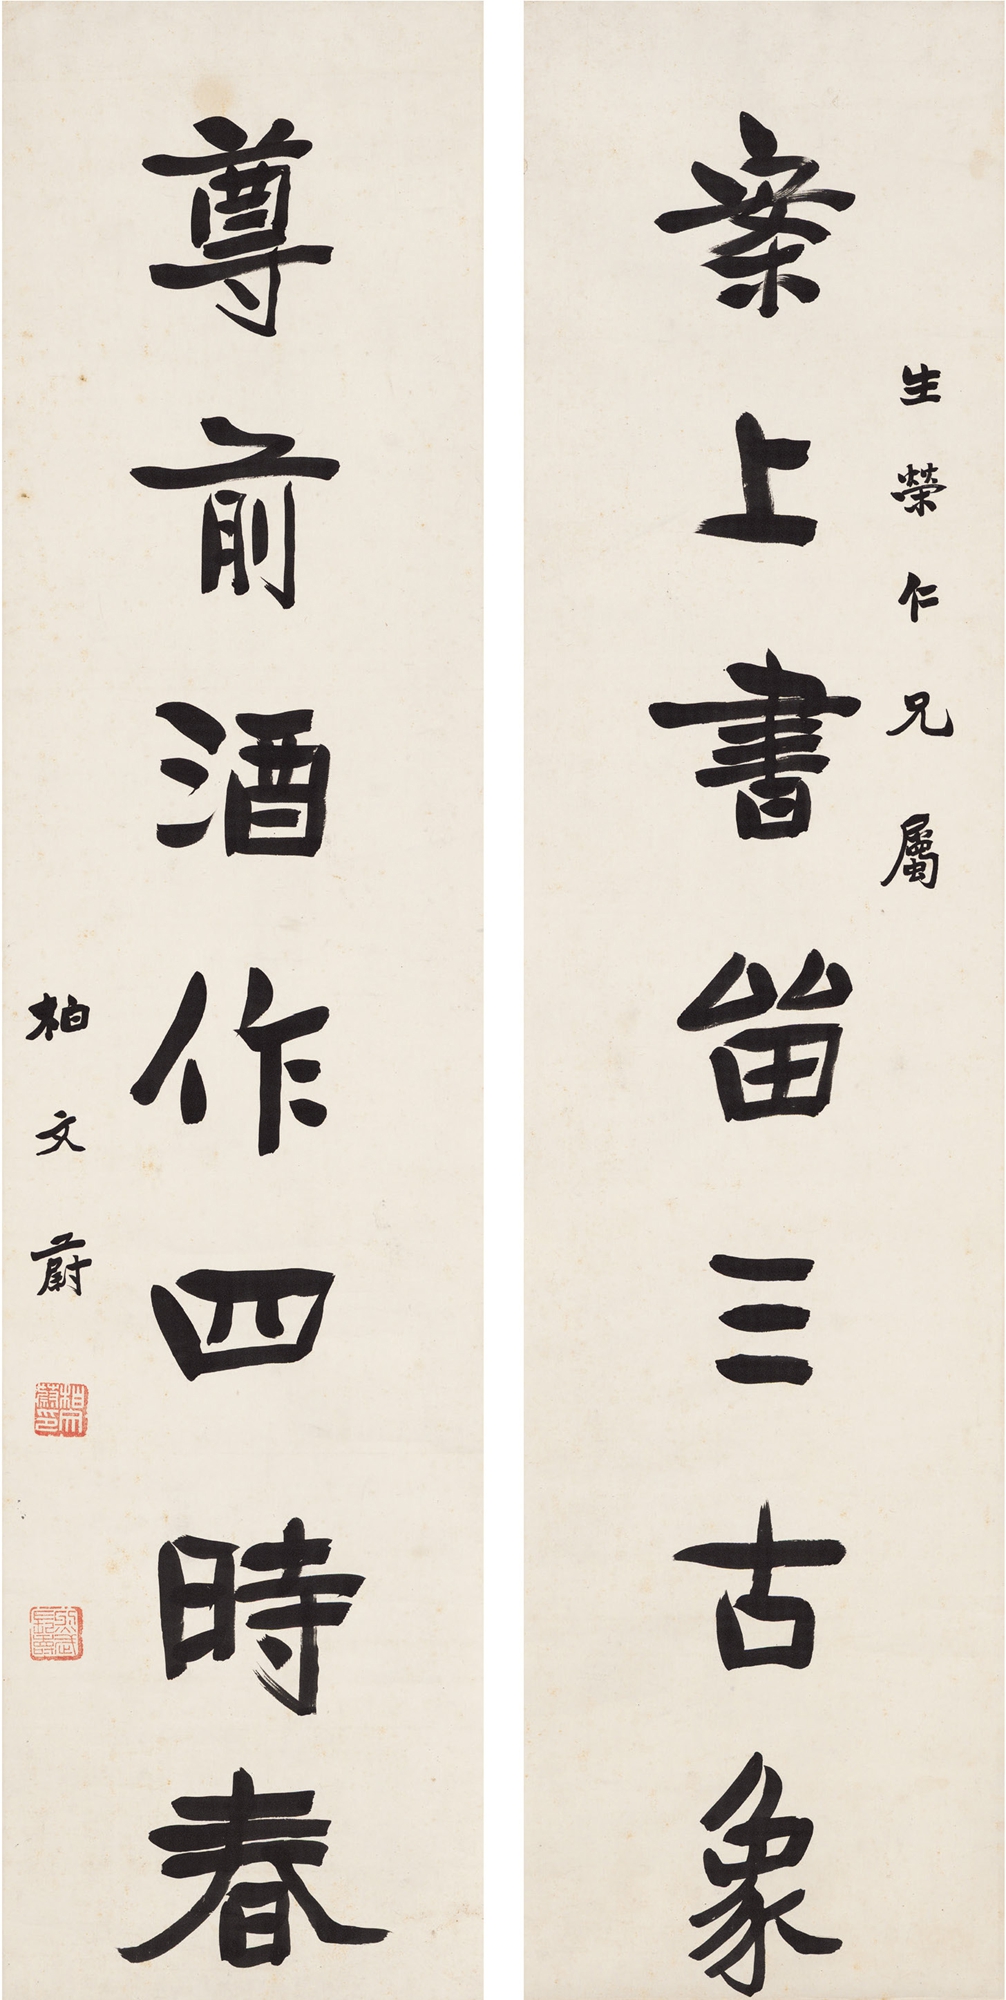 生榮仁兄屬
案上書留三古象
尊前酒作四時春
柏文蔚
柏文蔚印